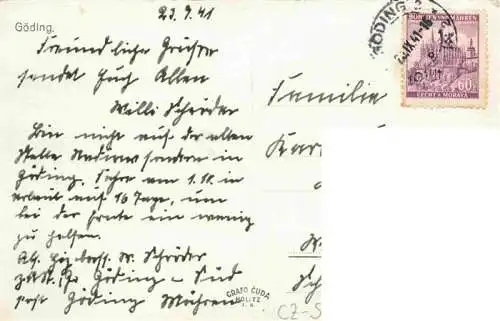 Göding.
23.9.41
Freundliche Grüsse
sendet Euch Allen
Willi Schröder
Bin nicht auf der alten
Stelle sondern in
Göding. Fahre am 1.10. in
Urlaub auf 16 Tage, um
bei der Ernte ein wenig
zu helfen.
W. Schröder
Göding - Süd
Post Göding Mähren
Familie
GRAFO ČUDA
HOLITZ
CZ-S
GÖDING
BÖHMEN U. MÄHREN
60
ČECHY A MORAVA